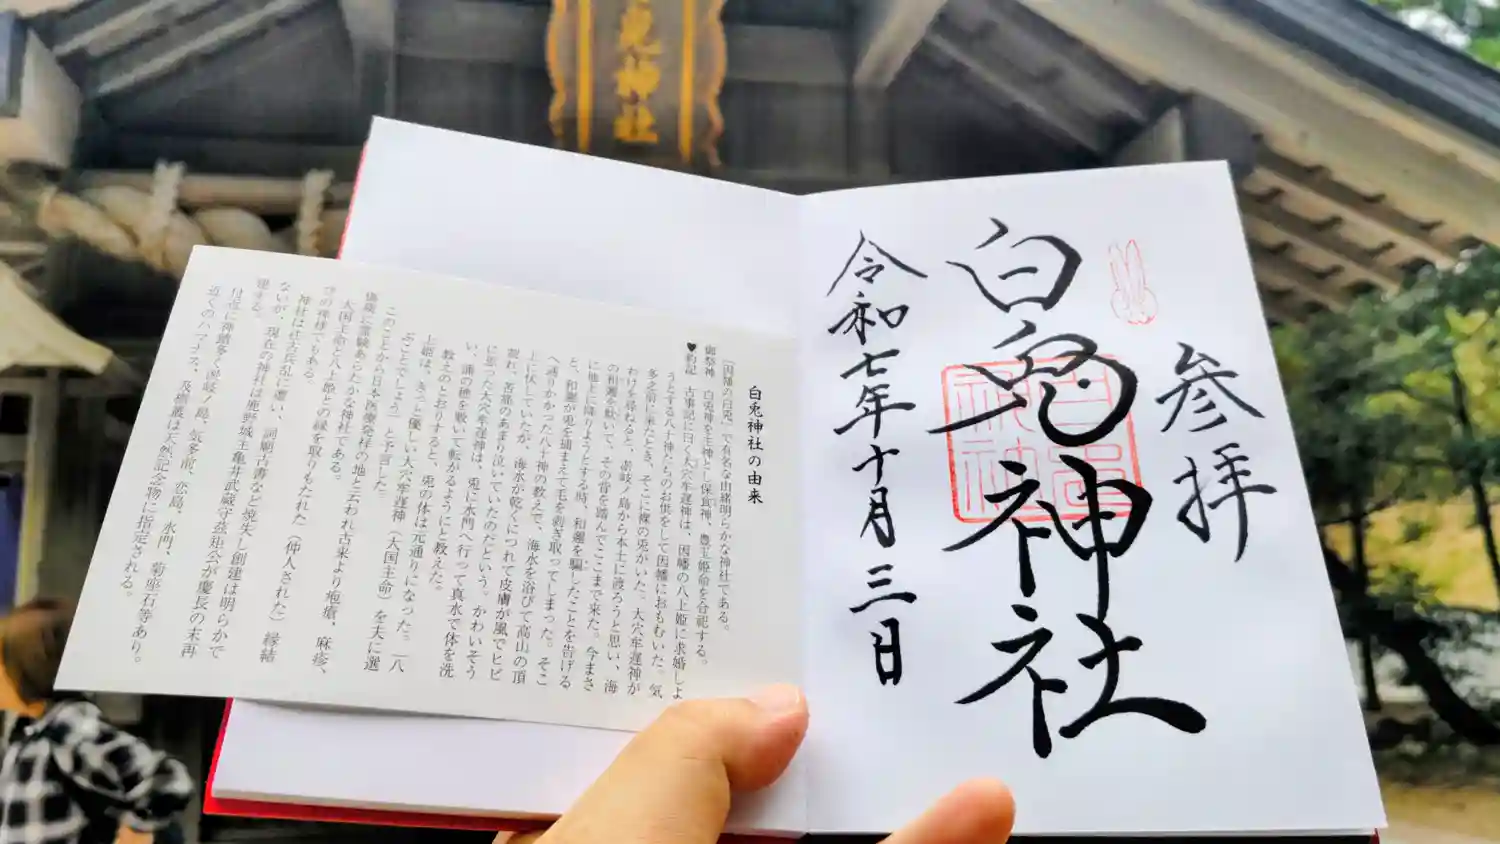 兎神社
参拝
白兎神社
令和七年十月三日
白兎神社の由来
「因幡の白兎」で有名な由緒明らかな神社である。
御祭神　白兎神を主神とし保食神、豊玉姫命を合祀する。
♥略記　古事記に曰く大穴牟遅神は、因幡の八上姫に求婚しよ
うとする八十神たちのお供をして因幡におもむいた。気
多之前に来たとき、そこに裸の兎がいた。大穴牟遅神が
わけを尋ねると、淤岐ノ島から本土に渡ろうと思い、海
の和邇を欺いて、その背を踏んでここまで来た。今まさ
に地上に降りようとする時、和邇を騙したことを告げる
と、和邇が兎を捕まえて毛を剥ぎ取ってしまった。そこ
へ通りかかった八十神の教えで、海水を浴びて高山の頂
上に伏していたが、海水が乾くにつれて皮膚が風でヒビ
割れ、苦痛のあまり泣いていたのだという。かわいそう
に思った大穴牟遅神は、兎に水門へ行って真水で体を洗
い、蒲の穂を敷いて転がるようにと教えた。
教えのとおりすると、兎の体は元通りになった。「八
上姫は、きっと優しい大穴牟遅神（大国主命）を夫に選
ぶことでしょう」と予言した。
このことから日本医療発祥の地と云われ古来より疱瘡、麻疹、
傷痍に霊験あらたかな神社である。
大国主命と八上姫との縁を取りもたれた（仲人された）縁結
びの神様でもある。
神社は往古兵乱に遭い、祠廟古書など焼失し創建は明らかで
ないが、現在の神社は鹿野城主亀井武蔵守茲矩公が慶長の末再
建する。
付近に神蹟多く淤岐ノ島、気多前、恋島、水門、菊座石等あり。
近くのハマナス、及樹叢は天然記念物に指定される。